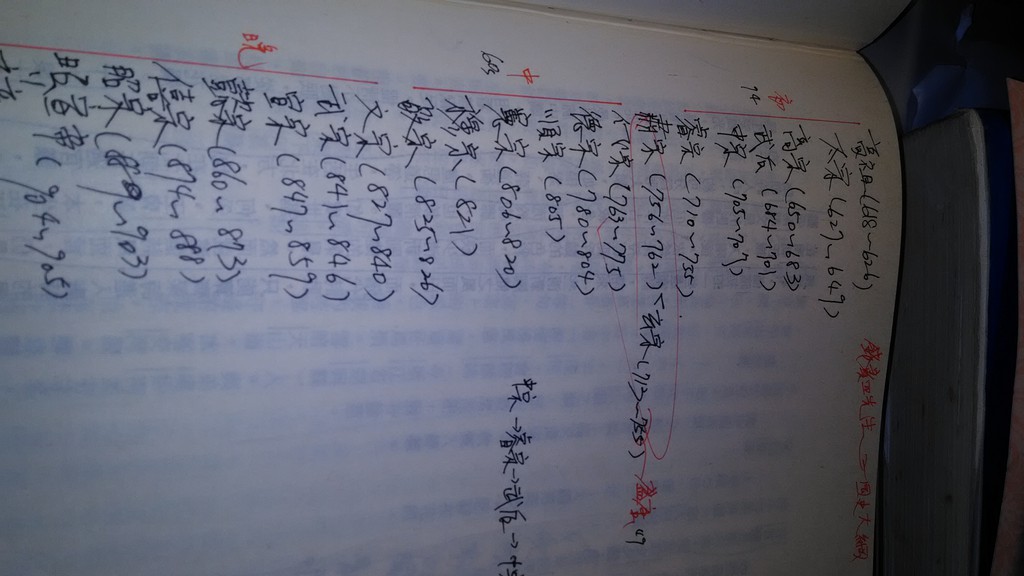 錢賓四先生 國史大綱
高祖(618~626)
太宗(627~649)
高宗(650~683)
武后(684~701)
中宗(705~707)
睿宗(710~755)
肅宗(756~762)<玄宗(712~755)
代宗(763~775)
盛唐
德宗(780~804)
順宗(805)
憲宗(806~820)
穆宗(821)
敬宗(825~826)
中
文宗(827~840)
武宗(841~846)
宣宗(847~859)
懿宗(860~873)
僖宗(874~888)
昭宗(889~903)
昭宣帝(904~905)
晚
中宗→睿宗→武后→中